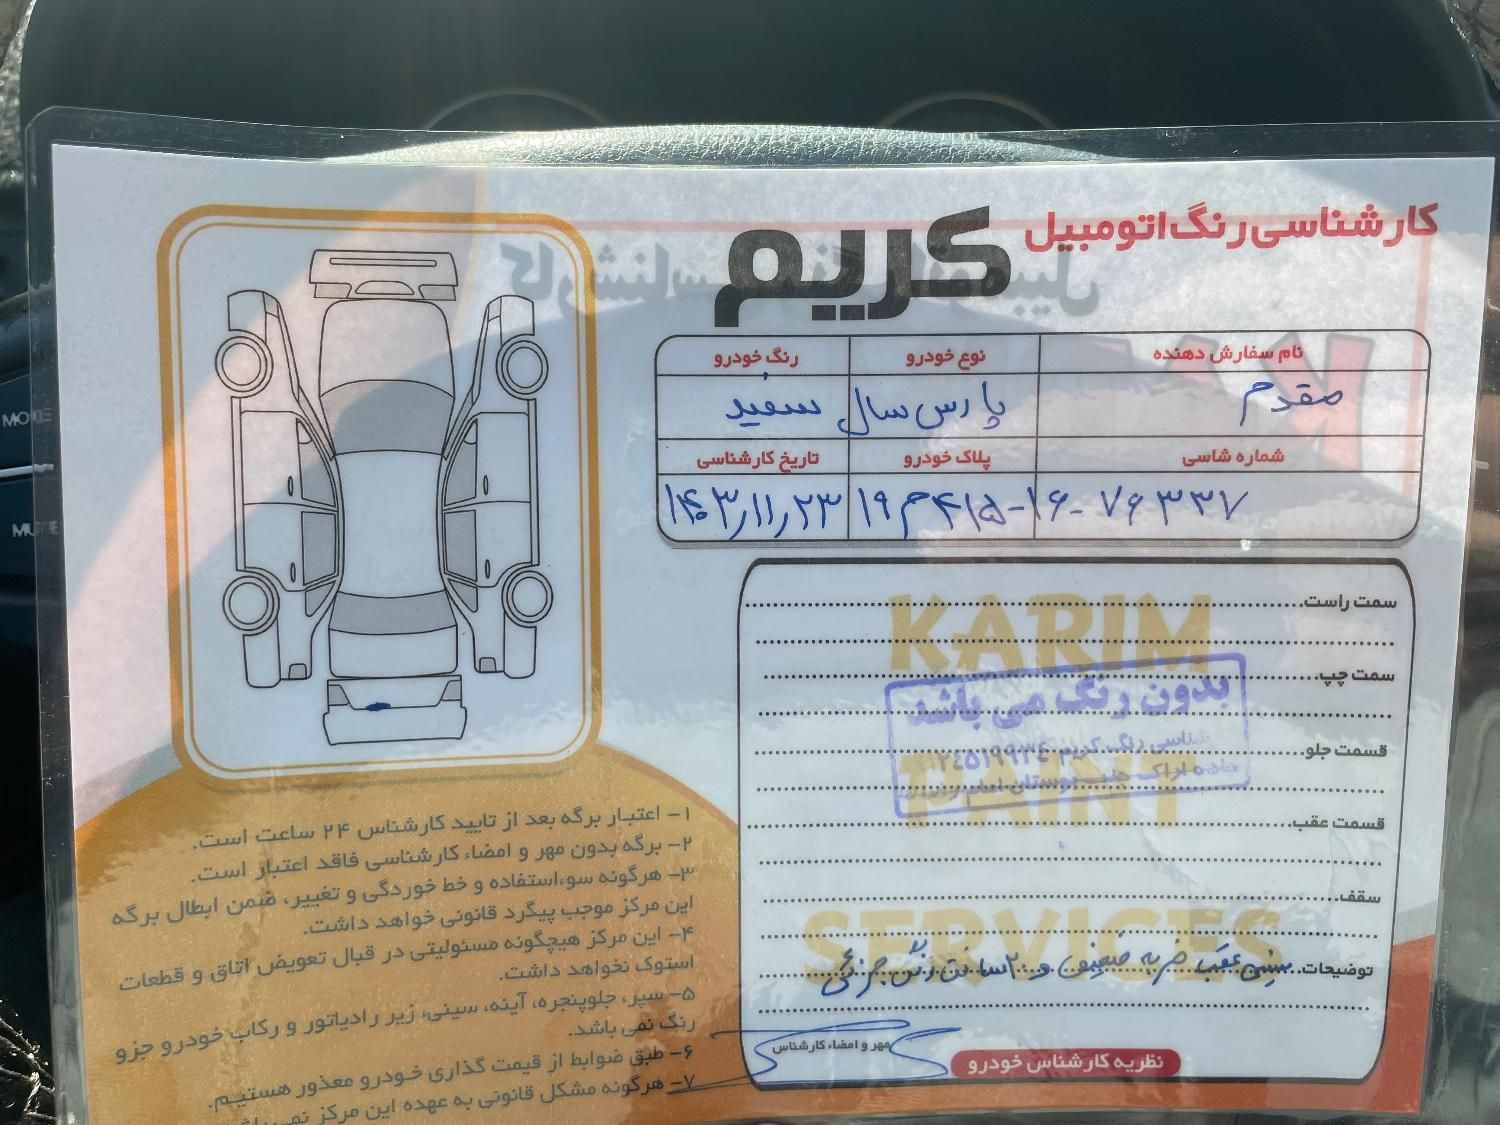 کارشناسی رنگ اتومبیل کریم
نام سفارش دهنده
نوع خودرو
رنگ خودرو
مقدم
پارس سال
سفید
شماره شاسی
پلاک خودرو
تاریخ کارشناسی
۷۶۳۳۷
۱۹م۴۱۵-۱۶
۱۴۰۳/۱۱/۲۳
سمت راست
سمت چپ
قسمت جلو
قسمت عقب
سقف
توضیحات سینی عقب ضربه و ۲۰ سانت رنگ جزئی
KARIM
PAINT
SERVICES
بدون رنگ می باشد
رنگ کریم
جاده اراک جنب بوستان امام
مهر و امضاء کارشناس
نظریه کارشناس خودرو
۱- اعتبار برگه بعد از تایید کارشناس ۲۴ ساعت است.
۲- برگه بدون مهر و امضاء کارشناسی فاقد اعتبار است.
۳- هرگونه سوءاستفاده و خط خوردگی و تغییر، ضمن ابطال برگه
این مرکز موجب پیگرد قانونی خواهد داشت.
۴- این مرکز هیچگونه مسئولیتی در قبال تعویض اتاق و قطعات
استوک نخواهد داشت.
۵- سپر، جلوپنجره، آینه، سینی، زیر رادیاتور و رکاب خودرو جزو
رنگ نمی باشد.
۶- طبق ضوابط از قیمت گذاری خودرو معذور هستیم.
۷- هرگونه مشکل قانونی به عهده این مرکز نمی باشد
MODE
MUTE